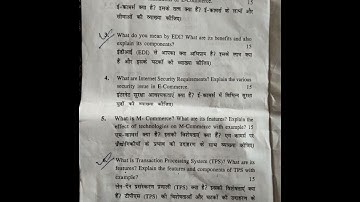 of E-Commerce. 15
ई-कामर्स क्या है? इसके लाभ क्या हैं? ई-कामर्स के लाभों और
सीमाओं की व्याख्या कीजिए।
3. What do you mean by EDI? What are its benefits and also
explain its components? 15
ईडीआई (EDI) से आपका क्या अभिप्राय है? इसके लाभ क्या
हैं और इसके घटकों की व्याख्या कीजिए।
4. What are Internet Security Requirements? Explain the various
security issue in E-Commerce. 15
इंटरनेट सुरक्षा आवश्यकताएं क्या हैं? ई-कामर्स में विभिन्न सुरक्षा
मुद्दों की व्याख्या कीजिए।
5. What is M- Commerce? What are its features? Explain the
effect of technologies on M-Commerce with example? 15
एम-कामर्स क्या है? इसकी विशेषताएं क्या हैं? एम कामर्स पर
प्रौद्योगिकियों के प्रभाव को उदाहरण के साथ व्याख्या कीजिए।
What is Transaction Processing System (TPS)? What are its
features? Explain the features and components of TPS with
example? 15
लेन-देन प्रसंस्करण प्रणाली (TPS) क्या है? इसकी विशेषताएं क्या
हैं? टीपीएस (TPS) की विशेषताओं और घटकों की उदाहरण के